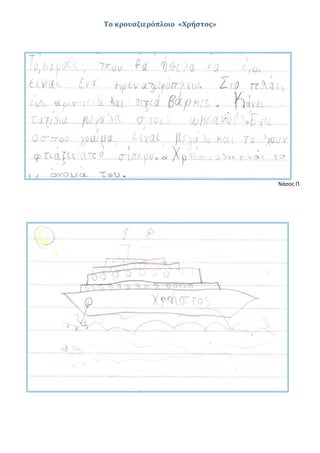 Το κρουαζιερόπλοιο «Χρήστος»
Το καράβι που θα ήθελα να έχω
είναι ένα κρουαζιερόπλοιο. Στο πλάι,
έχει και βάρκες. Κάνει
ταξίδια μεγάλα στους ωκεανούς. Έχει
άσπρο χρώμα, είναι μεγάλο και το έχουν
φτιάξει από σίδερο. « Χρήστος» είναι το
όνομά του.
Νάσος Π.
Χρήστος